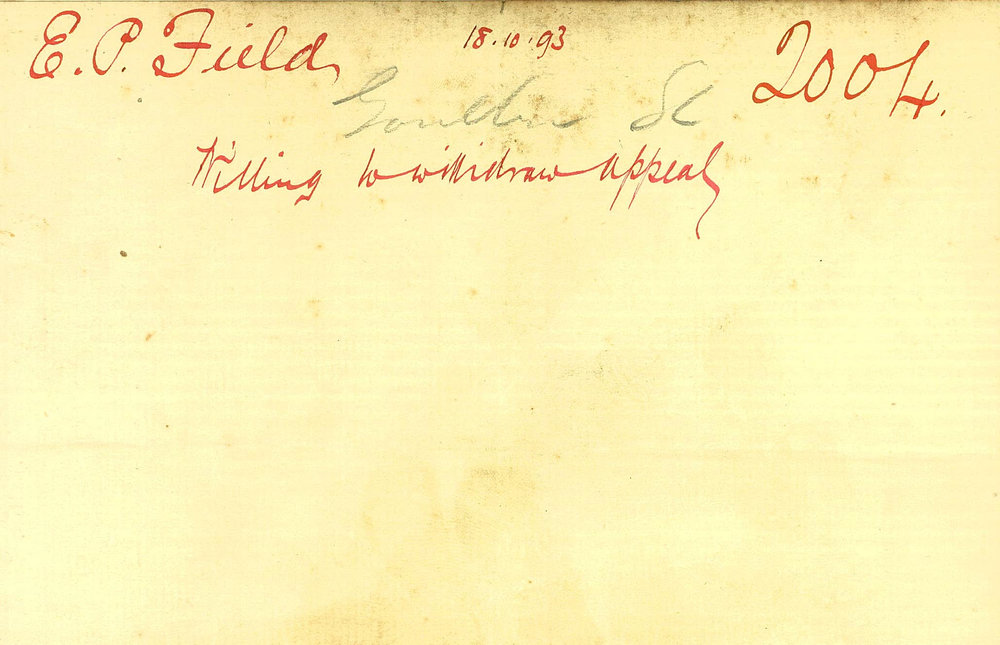 E. P. Field 18.10.93 2004.
Goulburn St
Willing to withdraw appeal